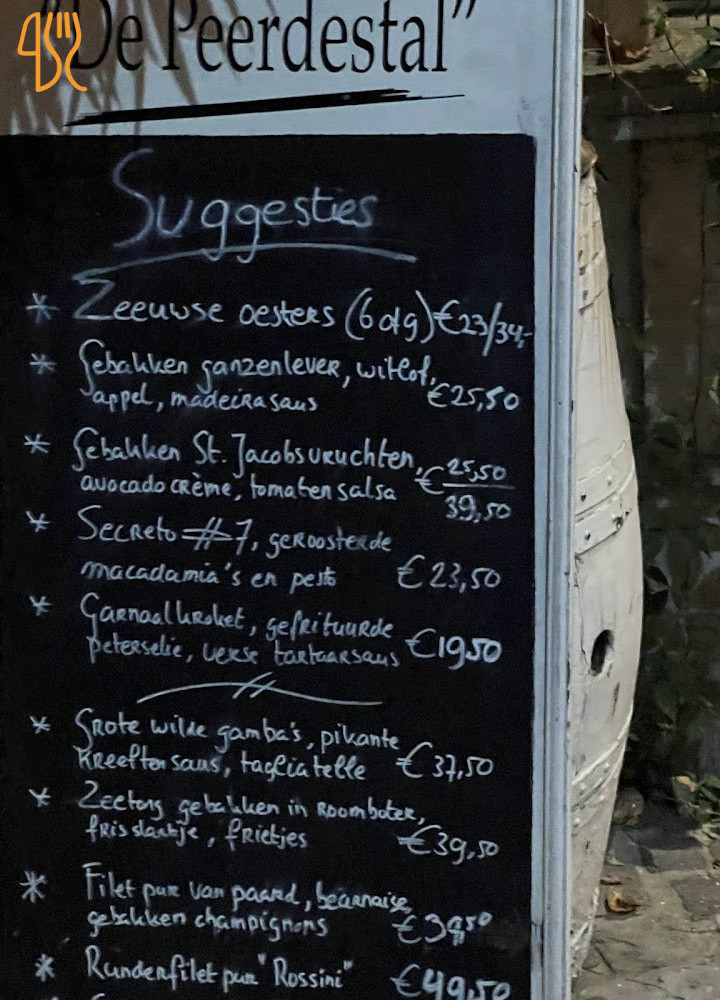 "De Peerdestal"
Suggesties
* Zeeuwse oesters (6 of 9) €23/34,-
* Gebakken ganzenlever, witlof,
appel, madeirasaus €25,50
* Gebakken St. Jacobsvruchten,
avocado crème, tomaten salsa € 25,50
39,50
* Secreto #7, geroosterde
macadamia's en pesto €23,50
* Garnaalkroket, gefrituurde
peterselie, verse tartaarsaus €19,50
* Grote wilde gamba's, pikante
kreeften saus, tagliatelle €37,50
* Zeetong gebakken in roomboter,
fris slaatje, frietjes €39,50
* Filet pur van paard, béarnaise,
gebakken champignons
* Runderfilet pur "Rossini" €49,50